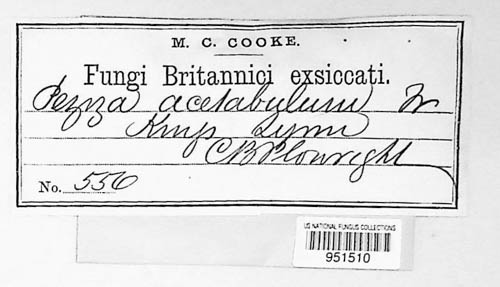 M. C. COOKE.
Fungi Britannici exsiccati.
Peziza acetabulum Fr
Kings Lynn
C B Plowright
No. 556
US NATIONAL FUNGUS COLLECTIONS
951510